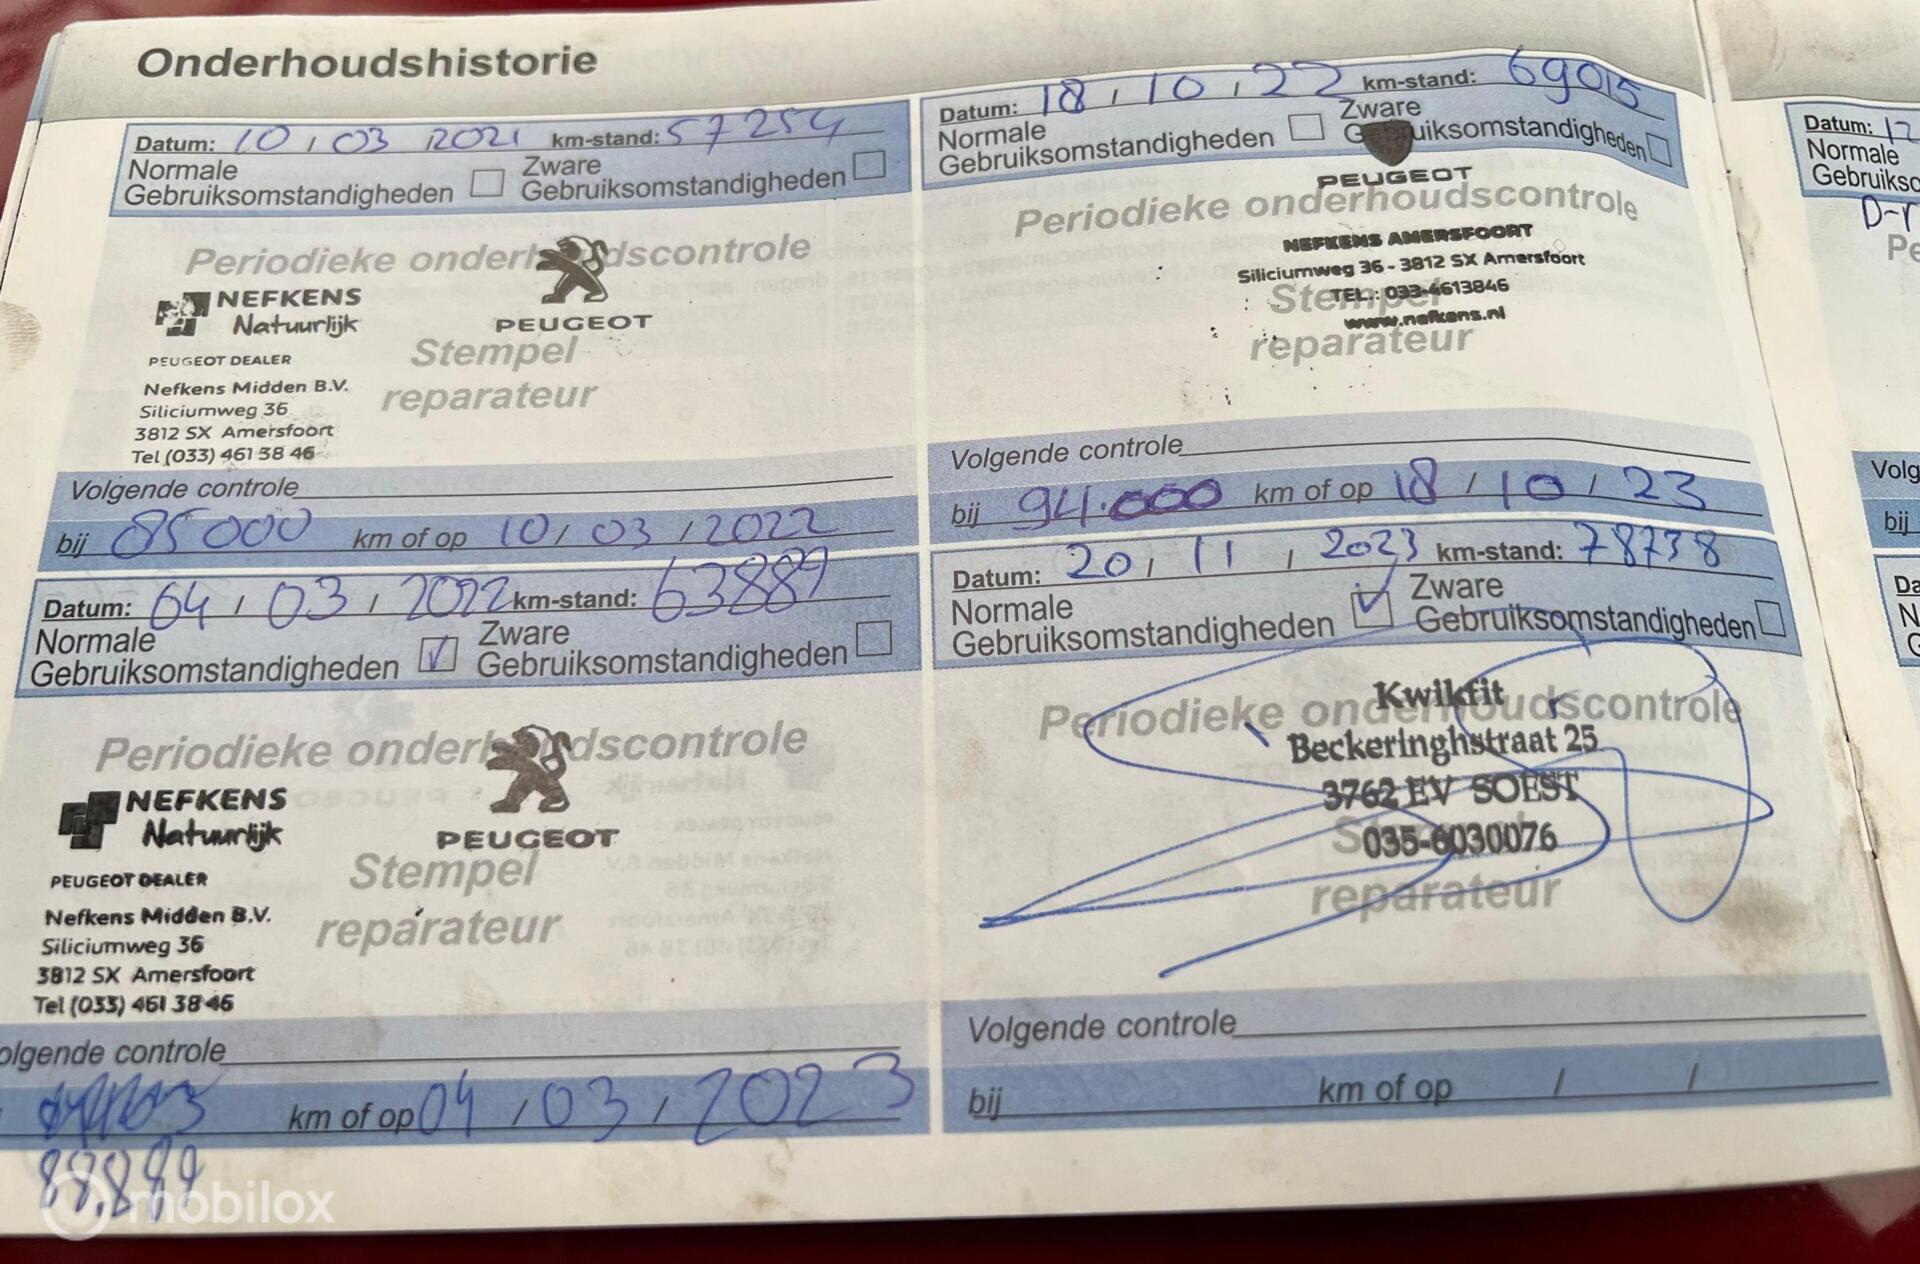 Onderhoudshistorie
Datum: 10 / 03 / 2021 km-stand: 57254
Normale Gebruiksomstandigheden
Zware Gebruiksomstandigheden
Periodieke onderhoudscontrole
NEFKENS
Natuurlijk
PEUGEOT
Stempel
reparateur
PEUGEOT DEALER
Nefkens Midden B.V.
Siliciumweg 36
3812 SX Amersfoort
Tel (033) 461 38 46
Volgende controle
bij 85000 km of op 10 / 03 / 2022
Datum: 04 / 03 / 2022 km-stand: 63889
Normale Gebruiksomstandigheden
Zware Gebruiksomstandigheden
Periodieke onderhoudscontrole
NEFKENS
Natuurlijk
PEUGEOT
Stempel
reparateur
PEUGEOT DEALER
Nefkens Midden B.V.
Siliciumweg 36
3812 SX Amersfoort
Tel (033) 461 38 46
olgende controle
km of op 04 / 03 / 2023
88.889
mobilox
Datum: 18 / 10 / 22 km-stand: 69015
Normale Gebruiksomstandigheden
Zware Gebruiksomstandigheden
PEUGEOT
Periodieke onderhoudscontrole
NEFKENS AMERSFOORT
Siliciumweg 36 - 3812 SX Amersfoort
TEL.: 033-4613846
www.nefkens.nl
Stempel
reparateur
Volgende controle
bij 94.000 km of op 18 / 10 / 23
Datum: 20 / 11 / 2023 km-stand: 78738
Normale Gebruiksomstandigheden
Zware Gebruiksomstandigheden
Periodieke onderhoudscontrole
Kwikfit
Beckeringhstraat 25
3762 EV SOEST
035-6030076
Stempel
reparateur
Volgende controle
bij km of op / /
Datum: 12
Normale
Gebruiksc
Pe
Volg
bij
Da
N
G